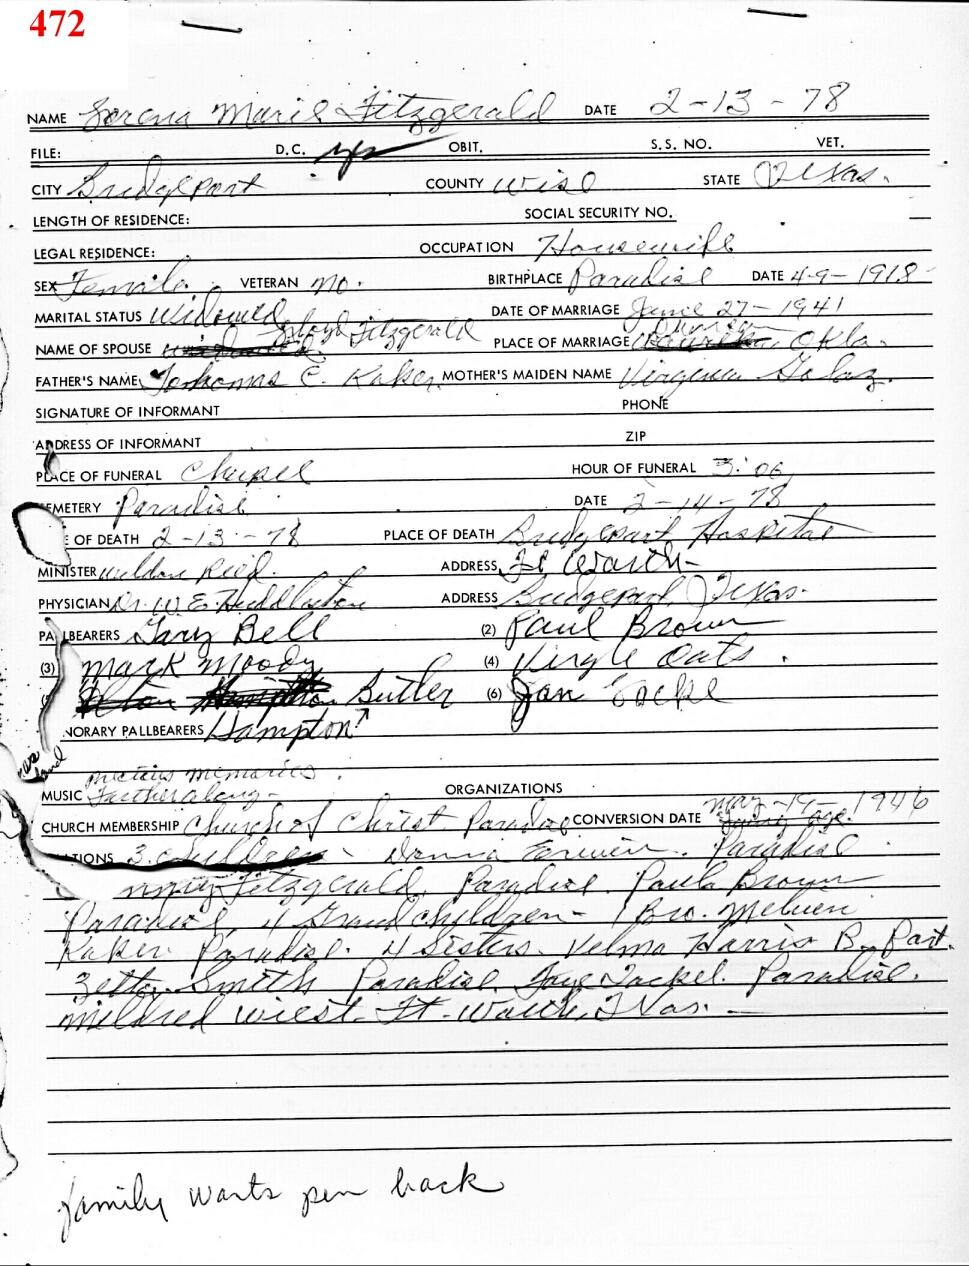 472
NAME Lorena Marie Fitzgerald DATE 2-13-78
FILE: D.C. yes OBIT. S.S. NO. VET.
CITY Bridgeport COUNTY Wise STATE Texas.
LENGTH OF RESIDENCE: SOCIAL SECURITY NO.
LEGAL RESIDENCE: OCCUPATION Housewife
SEX Female. VETERAN no. BIRTHPLACE Paradise DATE 4-9-1918
MARITAL STATUS Widowed DATE OF MARRIAGE June 27-1941
NAME OF SPOUSE Floyd Fitzgerald PLACE OF MARRIAGE Okla.
FATHER'S NAME E. Kaker MOTHER'S MAIDEN NAME Virginia
SIGNATURE OF INFORMANT PHONE
ADDRESS OF INFORMANT ZIP
PLACE OF FUNERAL Chapel HOUR OF FUNERAL 3:00
EMETERY Paradise DATE 2-14-78
E OF DEATH 2-13-78 PLACE OF DEATH Bridgeport Hospital
MINISTER Weldon Reed. ADDRESS Ft Worth-
PHYSICIAN Dr. W. E. Huddleston ADDRESS Bridgeport, Texas.
PALLBEARERS Gary Bell (2) Paul Brown
(3) Mark Moody (4) Virgle Oats.
Alton Hampton Butler (6) Jan
NORARY PALLBEARERS Hampton
Precious memories.
MUSIC Farther along- ORGANIZATIONS
CHURCH MEMBERSHIP Church of Christ Paradise CONVERSION DATE May-19-1946
ATIONS 3 children - Donna Paradise
Fitzgerald, Paradise. Paula Brown
Paradise, 4 Grandchildren- 1 Bro. Melvin
Kaker Paradise. 4 Sisters. Velma Harris B. Port.
Zetta Smith Paradise. Faye Paradise.
Mildred Wiest. Ft. Worth, Texas.-
family wants pen back